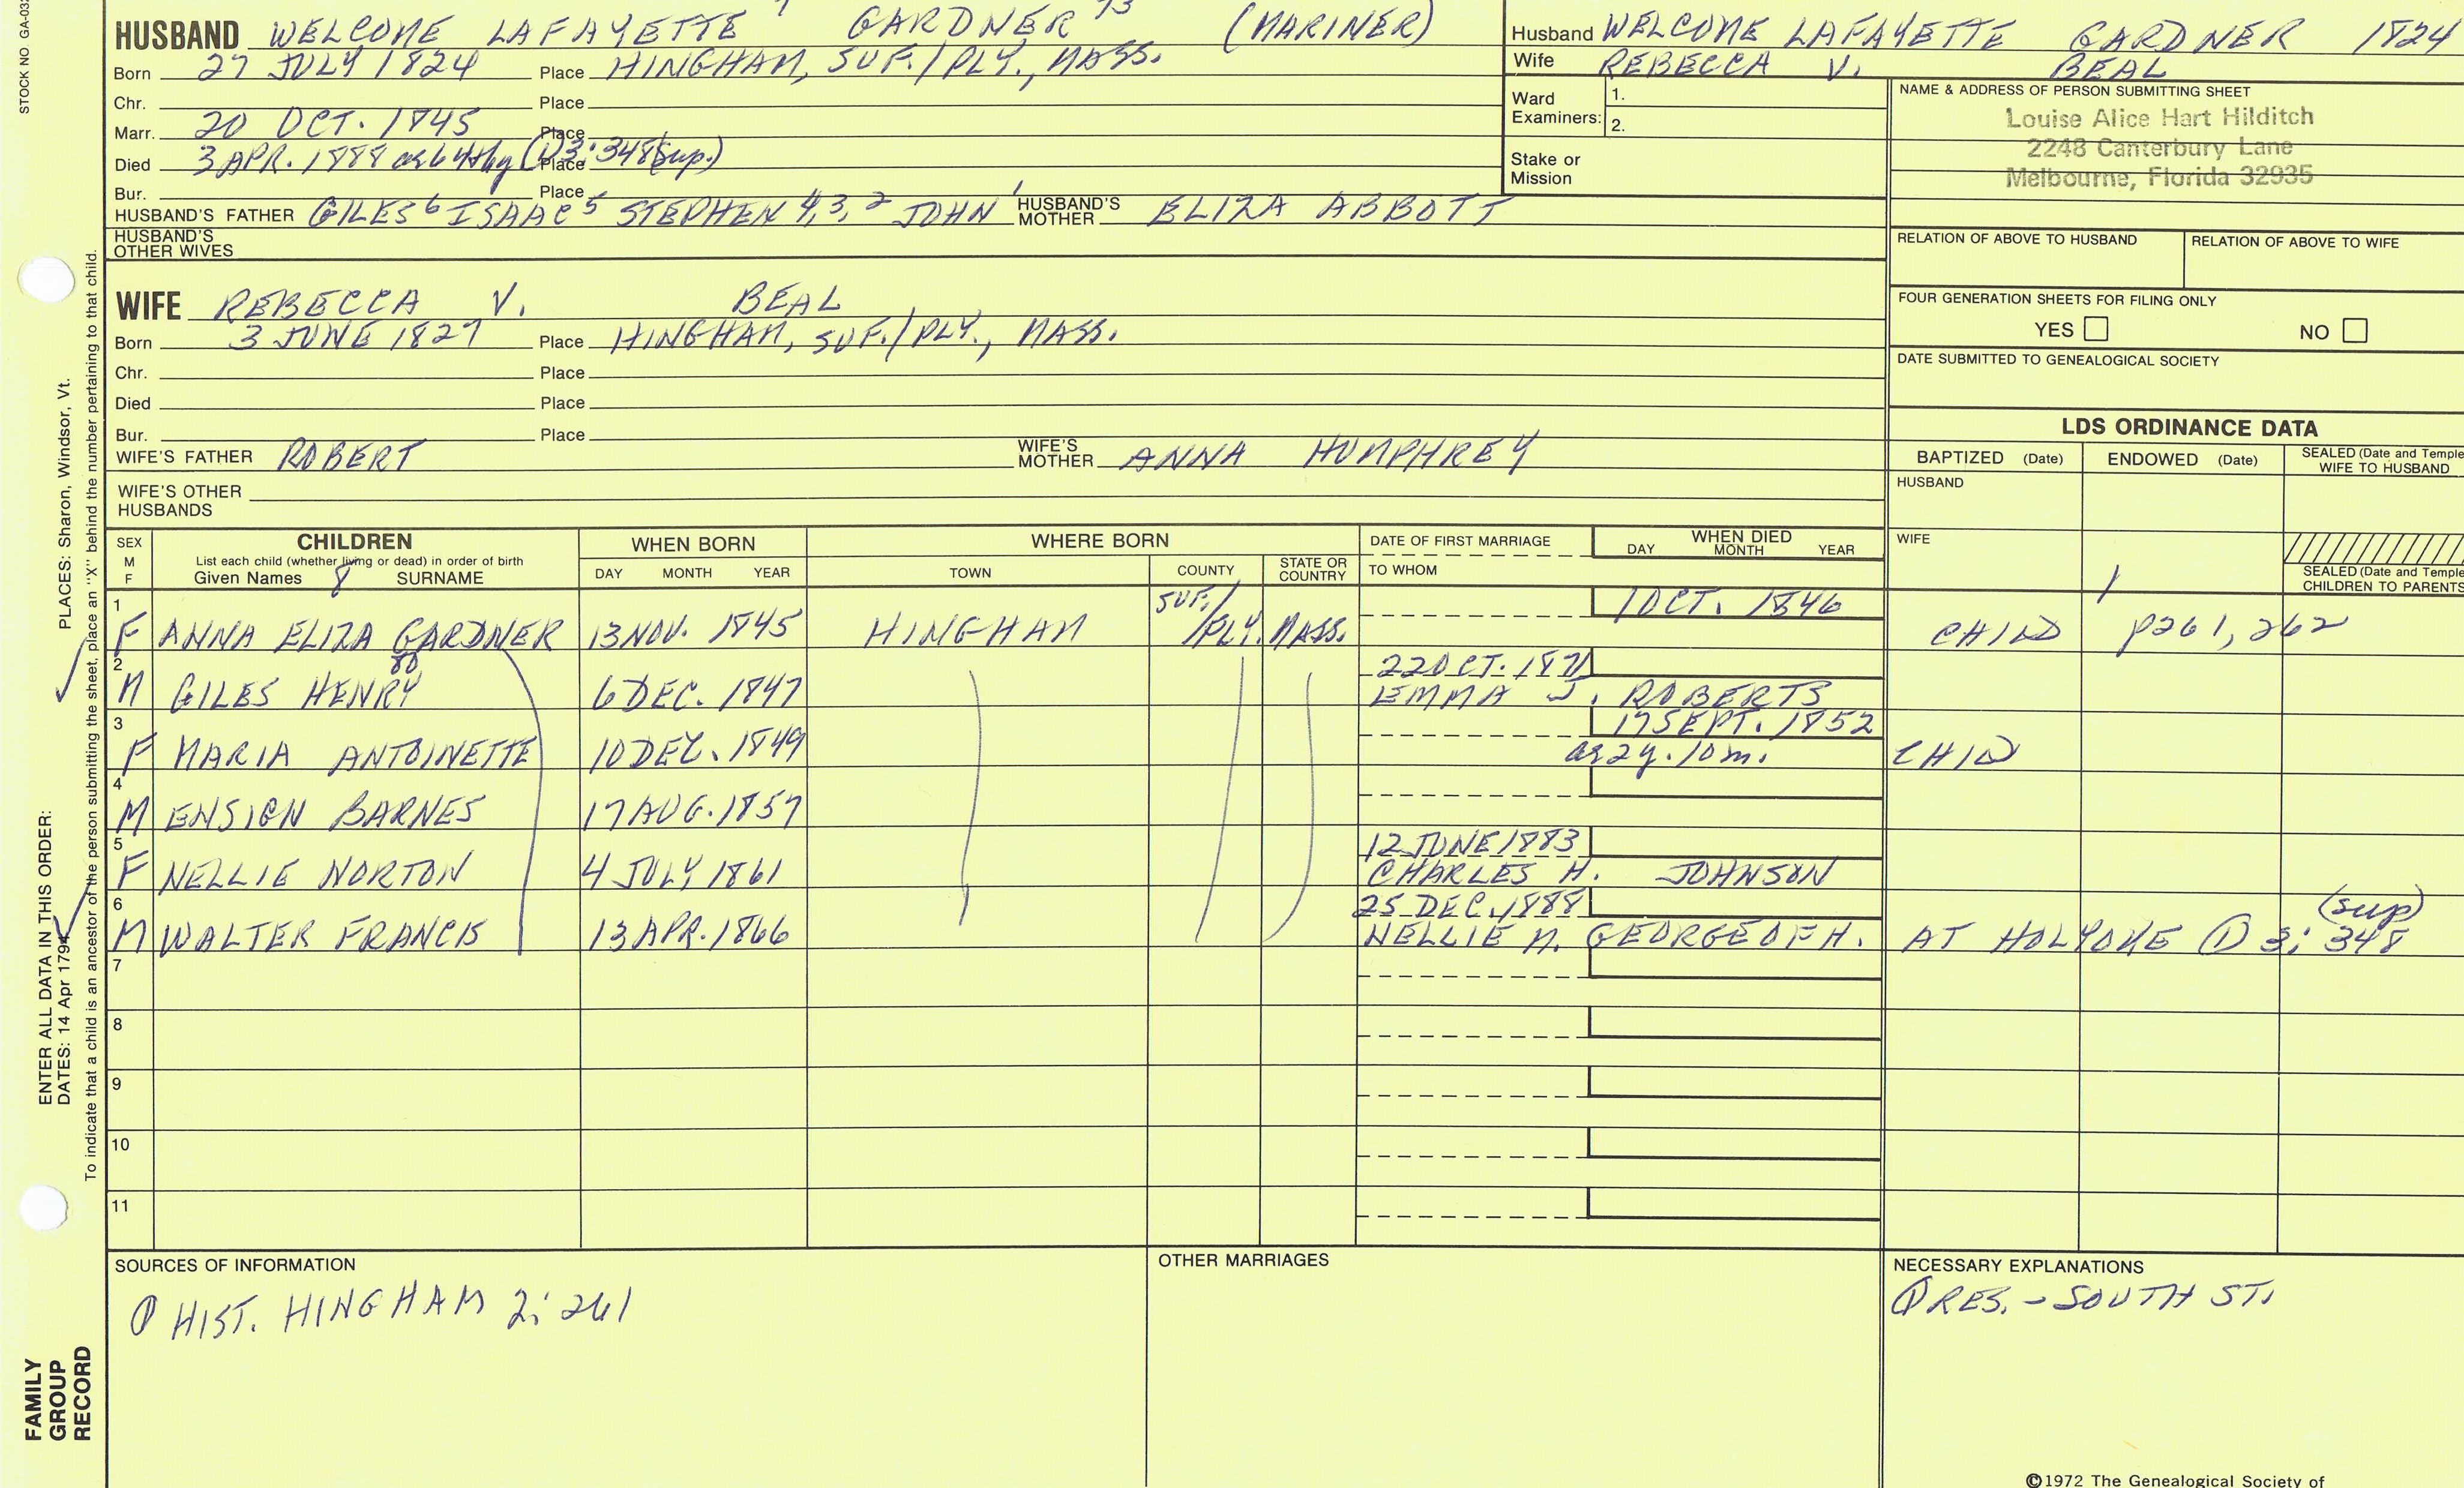 STOCK NO GA-032
HUSBAND WELCOME LAFAYETTE 7 GARDNER 73 (MARINER)
Born 27 JULY 1824 Place HINGHAM, SUF./PLY., MASS.
Chr. Place
Marr. 20 OCT. 1845 Place
Died 3 APR. 1888 Place (1) 3: 348 (sup.)
Bur. Place
HUSBAND'S FATHER GILES 6 ISAAC 5 STEPHEN 4,3,2 JOHN 1 HUSBAND'S MOTHER ELIZA ABBOTT
HUSBAND'S OTHER WIVES
Husband WELCOME LAFAYETTE GARDNER 1824
Wife REBECCA V. BEAL
Ward Examiners: 1.
2.
Stake or Mission
NAME & ADDRESS OF PERSON SUBMITTING SHEET
Louise Alice Hart Hilditch
2248 Canterbury Lane
Melbourne, Florida 32935
RELATION OF ABOVE TO HUSBAND RELATION OF ABOVE TO WIFE
FOUR GENERATION SHEETS FOR FILING ONLY
YES NO
DATE SUBMITTED TO GENEALOGICAL SOCIETY
WIFE REBECCA V. BEAL
Born 3 JUNE 1827 Place HINGHAM, SUF./PLY., MASS.
Chr. Place
Died Place
Bur. Place
WIFE'S FATHER ROBERT WIFE'S MOTHER ANNA HUMPHREY
WIFE'S OTHER HUSBANDS
LDS ORDINANCE DATA
BAPTIZED (Date) ENDOWED (Date) SEALED (Date and Temple) WIFE TO HUSBAND
HUSBAND
WIFE
SEALED (Date and Temple) CHILDREN TO PARENTS
SEX M F
CHILDREN
List each child (whether living or dead) in order of birth
Given Names 8 SURNAME
WHEN BORN
DAY MONTH YEAR
WHERE BORN
TOWN COUNTY STATE OR COUNTRY
DATE OF FIRST MARRIAGE
TO WHOM
WHEN DIED
DAY MONTH YEAR
1 F ANNA ELIZA GARDNER 13 NOV. 1845 HINGHAM SUF./PLY. MASS. 1 OCT. 1846 CHILD p261, 262
80
2 M GILES HENRY 6 DEC. 1847 22 OCT. 1871
EMMA J. ROBERTS
3 F MARIA ANTOINETTE 10 DEC. 1849 17 SEPT. 1852
as 2y. 10m. CHILD
4 M ENSIGN BARNES 17 AUG. 1857
5 F NELLIE NORTON 4 JULY 1861 12 JUNE 1883
CHARLES H. JOHNSON
6 M WALTER FRANCIS 13 APR. 1866 25 DEC. 1888
NELLIE M. GEORGE OF H. AT HOLYOKE (1) 3: 348 (sup)
7
8
9
10
11
SOURCES OF INFORMATION
(1) HIST. HINGHAM 2: 261
OTHER MARRIAGES
NECESSARY EXPLANATIONS
(1) RES. - SOUTH ST.
©1972 The Genealogical Society of
ENTER ALL DATA IN THIS ORDER:
DATES: 14 Apr 1794 PLACES: Sharon, Windsor, Vt.
To indicate that a child is an ancestor of the person submitting the sheet, place an "X" behind the number pertaining to that child.
FAMILY
GROUP
RECORD